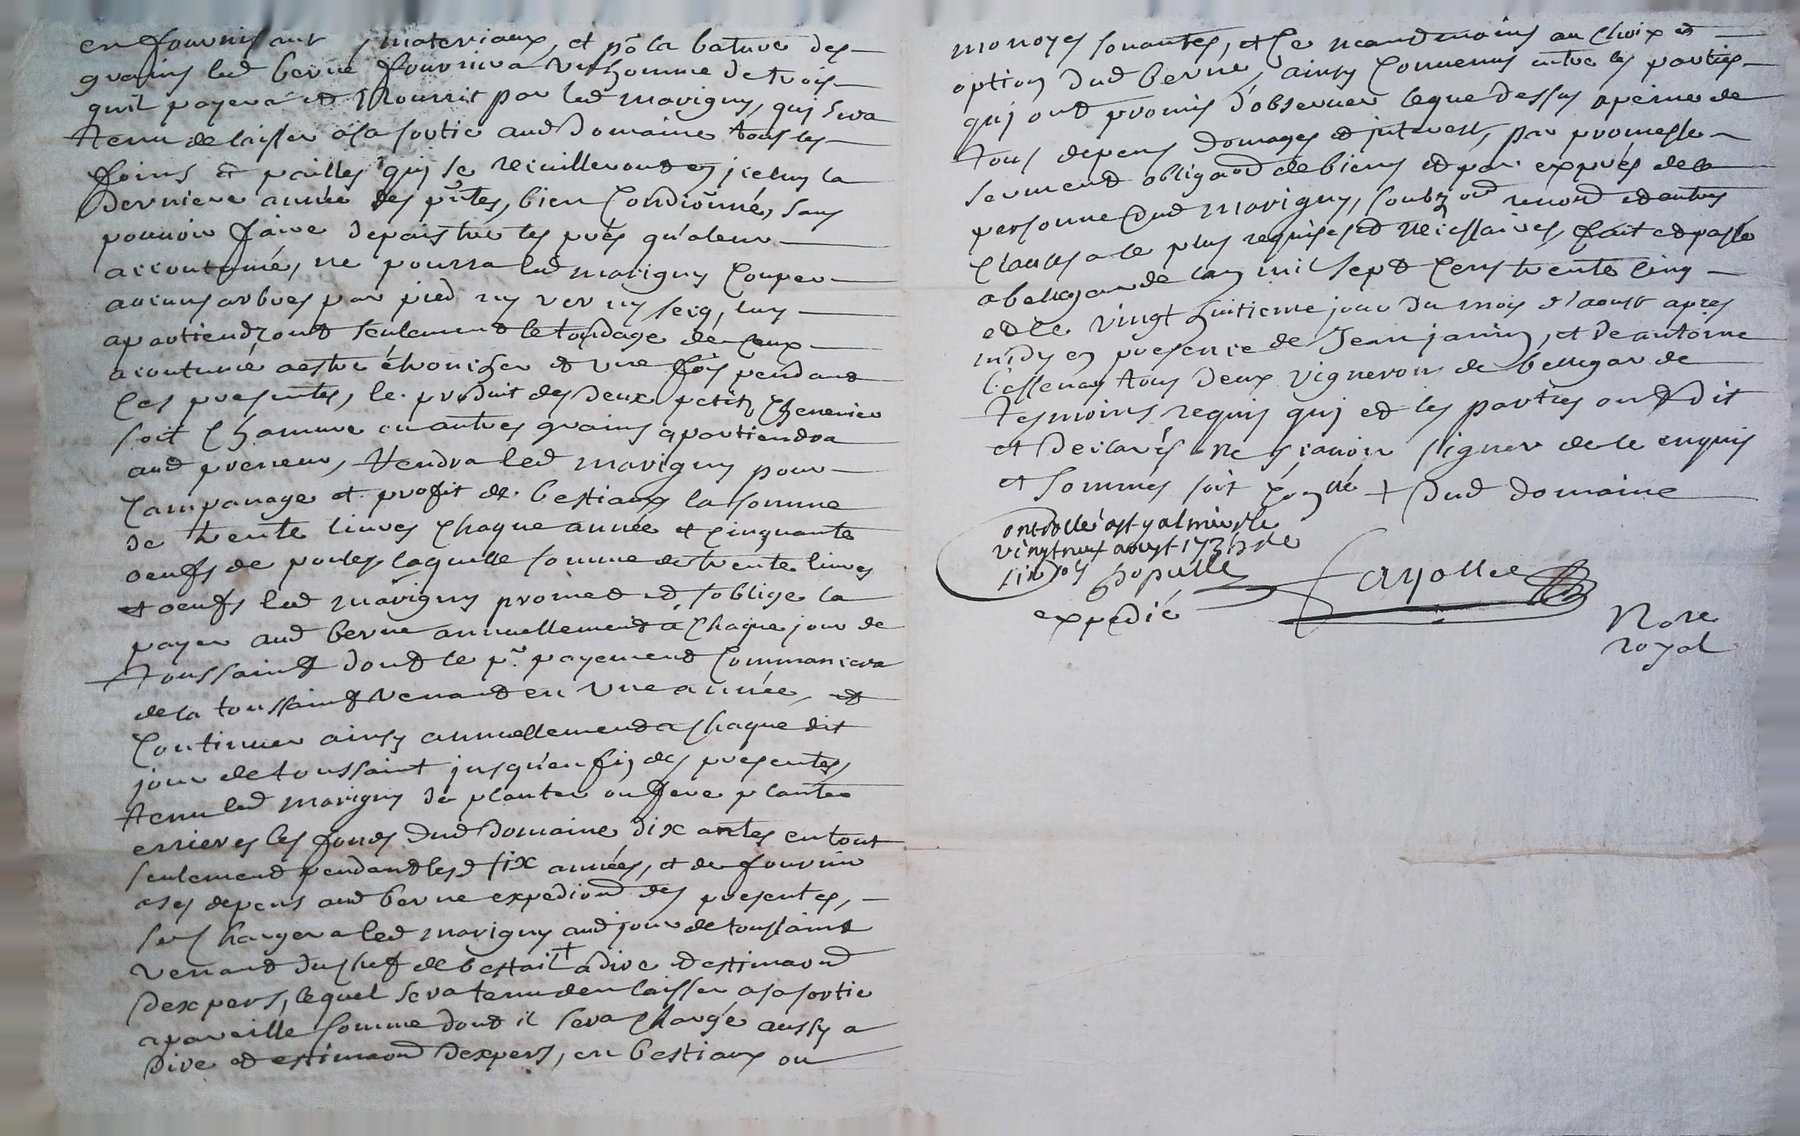 en fournissant materiaux, et po la bature des
grains led berne fournira un homme de trois
quil payera et Nourrit par led marigny, qui sera
tenu de laisser a sa sortie aud Domaine tous les
foins et pailles qui se recuilleront en jceluy la
Derniere année des pntes, bien Condionné, sans
pouvoir faire depaistre les prés qu'aleur
accoutumé, ne pourra led marigny Couper
aucuns arbres par pied ny ver ny secq, luy
apartiendront seulement le tondage de Ceux
acoutumé aestre étroncher et une fois pendant
Ces presentes, le produit des deux petits Chenevier
soit Chamure ou autres grains apartiendra
aud preneur, Rendra led marigny pour
Campanage et profit de bestiaux la somme
de trente livres Chaque année et Cinquante
oeufs de poules, laquelle somme de trente livres
et oeufs led marigny promet et soblige la
payer aud berne annuellement a Chaque jour de
toussaint dont le pr payement Commancera
de la toussaint venant en une année, et
Continuer ainsy annuellement a chaque dit
jour de toussaint jusqu'en fin des presentes,
tenu led marigny de planter ou fere planter
errieres les fonds dud domaine dix antes en tout
seulement pendant lesd six années, et de fournir
ases depens aud berne expediond des presentes,
se Chargera led marigny aud jour de toussaint
venant du chef de bestail + a dire et estimaond
Dexpers, lequel sera tenu den laisser a sa sortie
apareille somme dont il sera Chargé aussy a
Dire et estimaond dexpers, en bestiaux ou
monoyes sonantes, et Ce neandmoins au Choix et
option dud berne, ainsy Convenus entre les parties
qui ont promis d'observer ceque dessus apeine de
tous depens domages et jnterest, par promesse
serment obligaond de biens et par exprés de la
personne dud marigny, soubz ond renond et autres
Clauses a ce plus requises et necessaires, fait et passé
a bellegarde lan mil sept Cens trente cinq
et le vingt huitieme jour du mois d'aoust apres
midy en presence de Jean janin, et de antoine
tous deux vignerons de bellegarde
tesmoins requis qui et les parties ont dit
et Declarés ne scavoir signer de ce enquis
et sommes soit + dud domaine
ontrollé a st galmier le
vingt neuf aoust 1735 de
six sols populle
expedié
Fayolle
Nore
royal